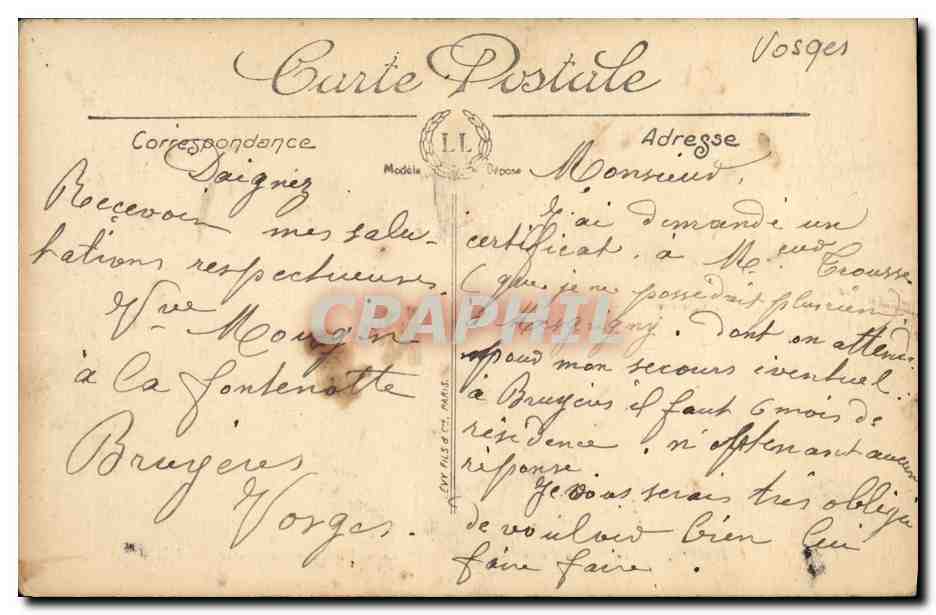 Vosges
Carte Postale
Correspondance
LL
Modèle Déposé
Adresse
Daignez
Recevoir mes salu-
tations respectueuses
Vve Mougin
à la fontenotte
Bruyères
Vosges.
LÉVY FILS & Cie, PARIS.
Monsieur,
J'ai dimandé un
certificat à Mr eur Trousse
(que je ne possédais plus rien
à . dont on attend
pour mon secours éventuel.
à Bruyères il faut 6 mois de
résidence . n'obtenant aucune
réponse.
Je vous serais très obligé
de vouloir bien lui
faire faire.
CPAPHIL